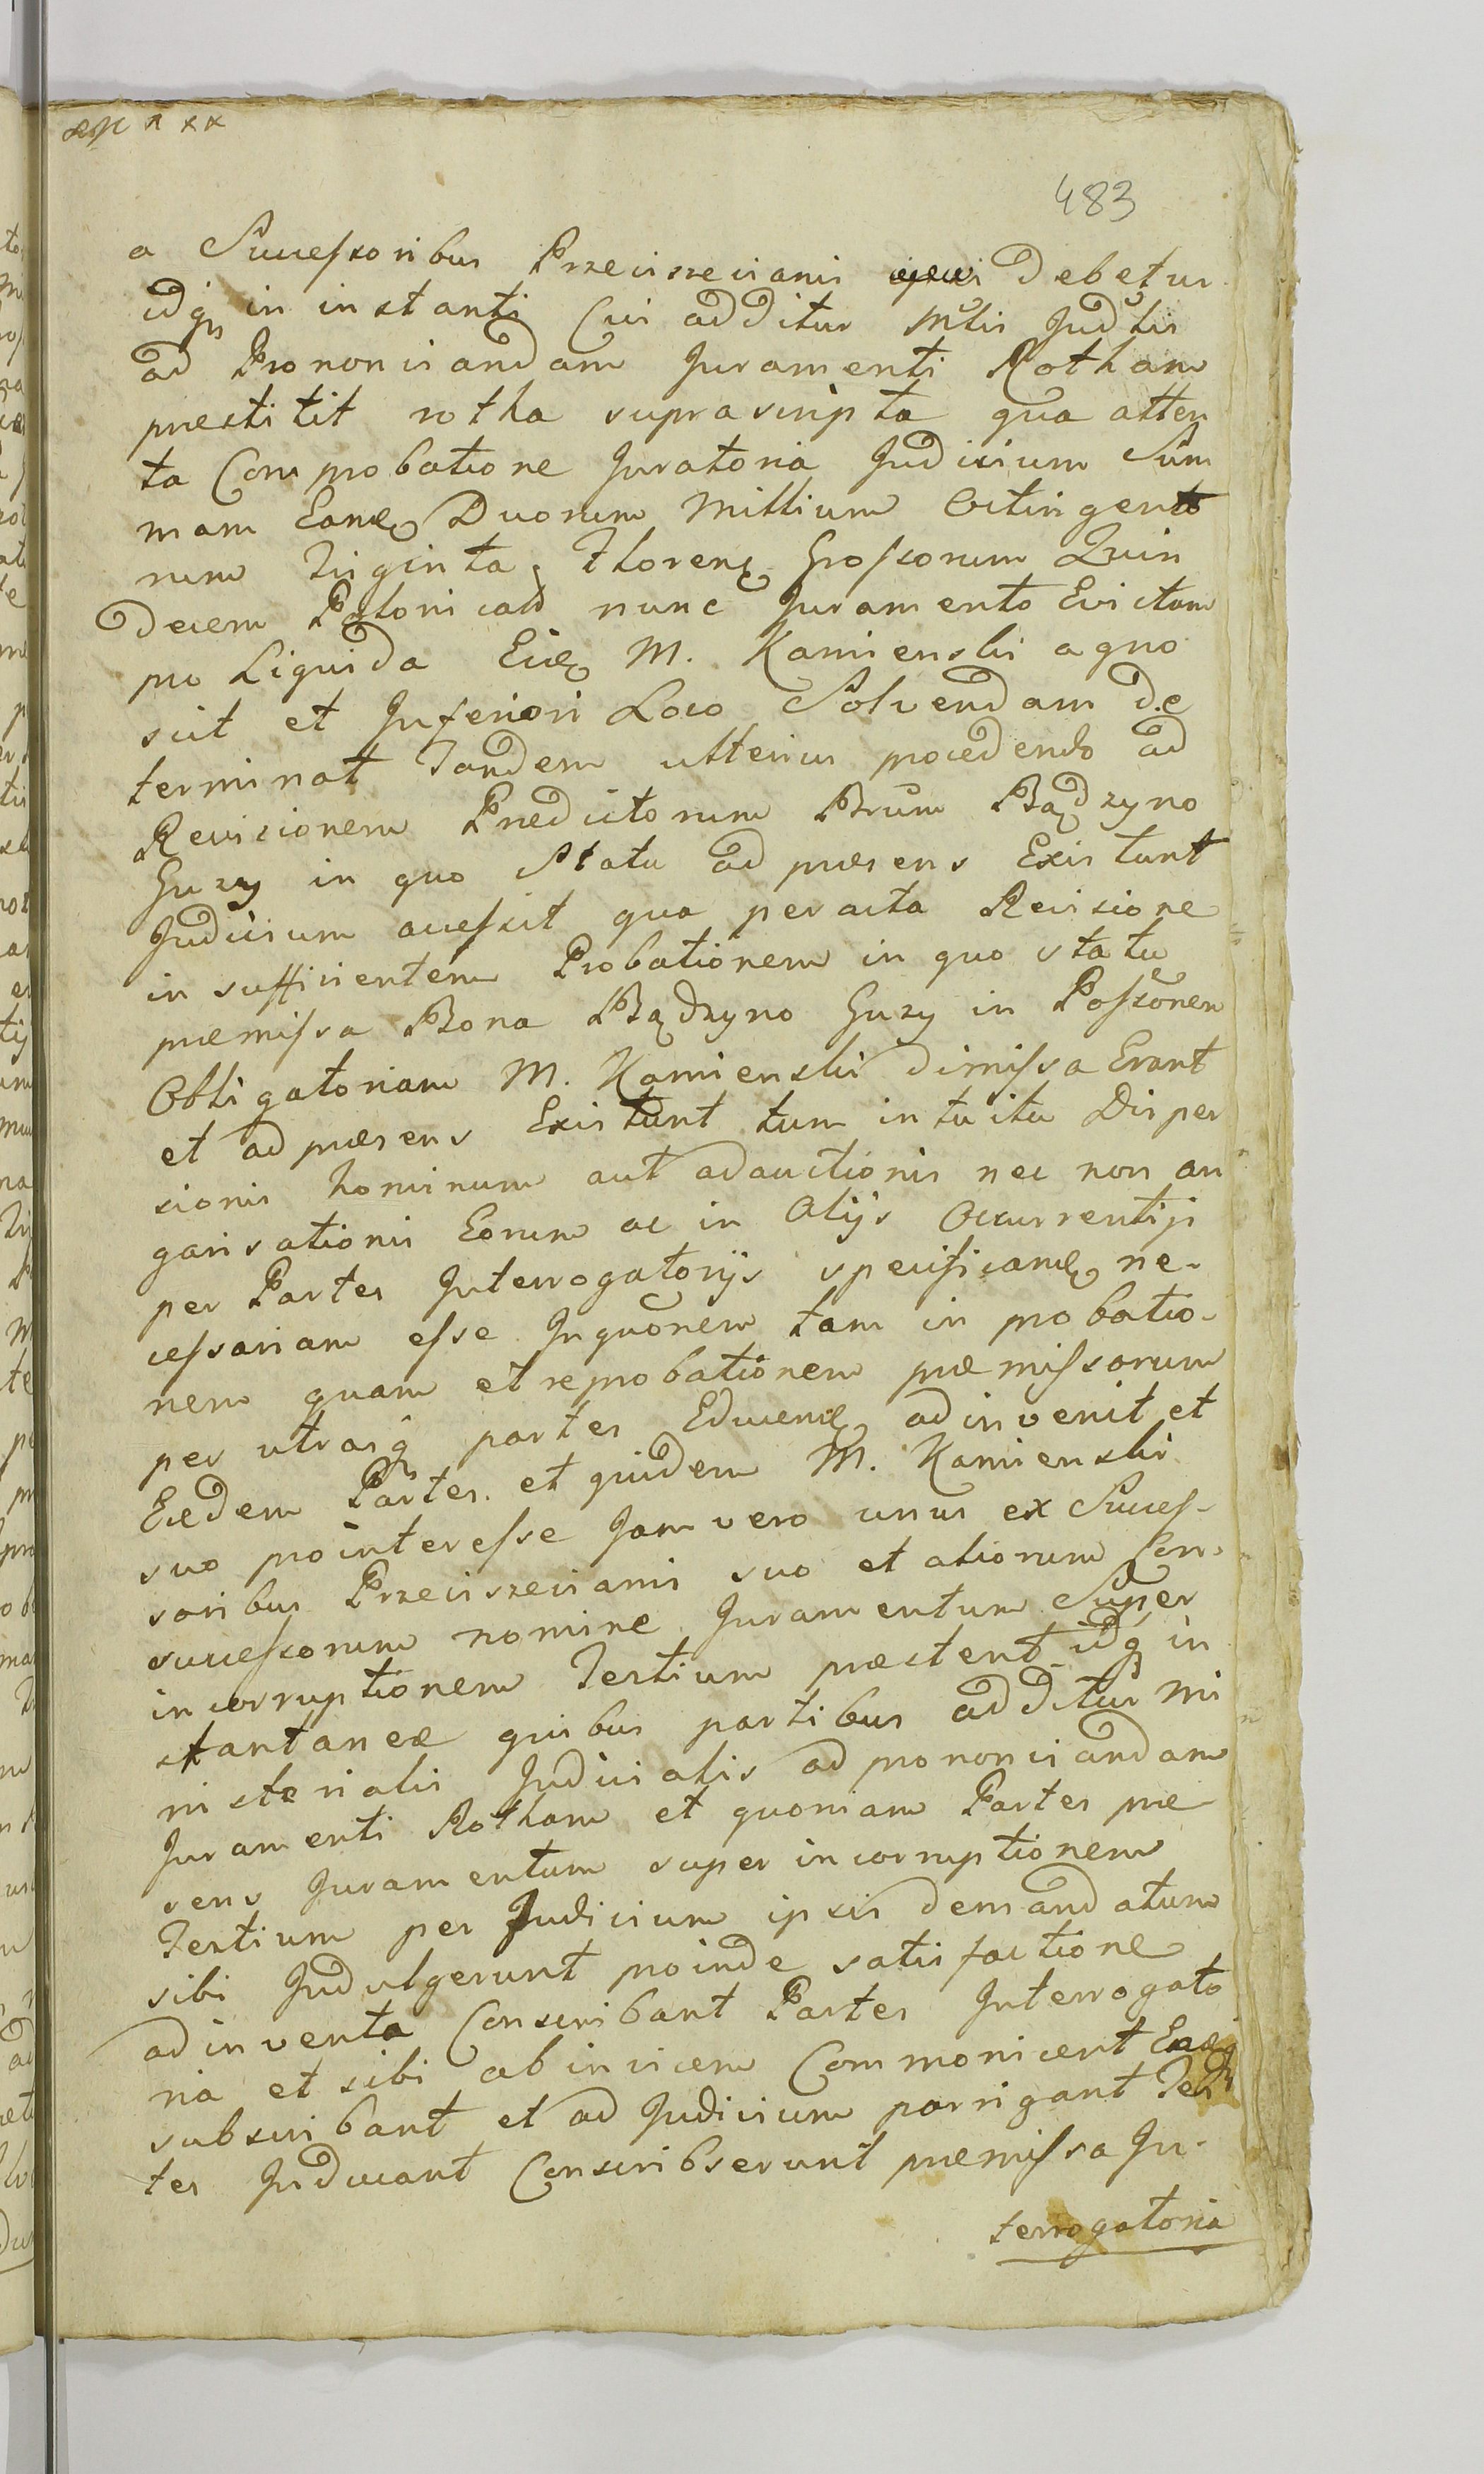 483
a Successoribus Przeciszecianis ipsi debetur
idq̃ in instanti Cui additur Mĩlis Judlis
ad Prononciandam Juramenti Rotham
præstitit rotha suprascripta qua atten
ta Comprobatione Juratoria Judicium Sum
mam Eandẽ Duorum Millium Octingento
rum Triginta Florenõ Grossorum Quin
decem Polonicalẽ nunc Juramento Evictam
pro Liquida Eidẽ M. Kamienski agno
scit et Inferiori Loco Solvendam de
terminat Tandem ulterius procedendo ad
Revisionem Prædictorum Brum Bądzyno
Guzy in quo Statu ad præsens Existunt
Judicium accessit qua peracta Revisione
in sufficientem Probationem in quo statu
præmissa Bona Bądzyno Guzy in Possonem
Obligatoriam M. Kamienski dimissa Erant
et ad præsens Existunt tum intuitu Disper
sionis hominum aut adauctionis nec non an
garisationis Eorum ac in Alijs Occurrentijs
per Partes Interrogatorijs specificandẽ ne-
cessariam esse Inquõnem tam in probatio-
nem quam et reprobationem præmissorum
per utrasq̃ partes Educendẽ adinvenit et
Eædem Partes et quidem M. Kamienski
suo pro interesse Jam vero unus ex Succes-
soribus Przeciszecianis suo et aliorum Con-
successorum nomine Juramentum Super
incorruptionem Testium præstent idq̃ in
stantanee quibus partibus additur Mi
nisterialis Judicialis ad prononciandam
Juramenti Rotham et quoniam Partes præ
sens Juramentum super incorruptionem
Testium per Judicium ipsis demandatum
sibi Indulgerunt proinde satisfactione
adinventa Conscribant Partes Interrogato
ria et sibi ab invicem Commonicent Eaq̃
subscribant et ad Judicium porrigant Tes
tes Inducant Conscribserunt præmissa In-
terrogatoria